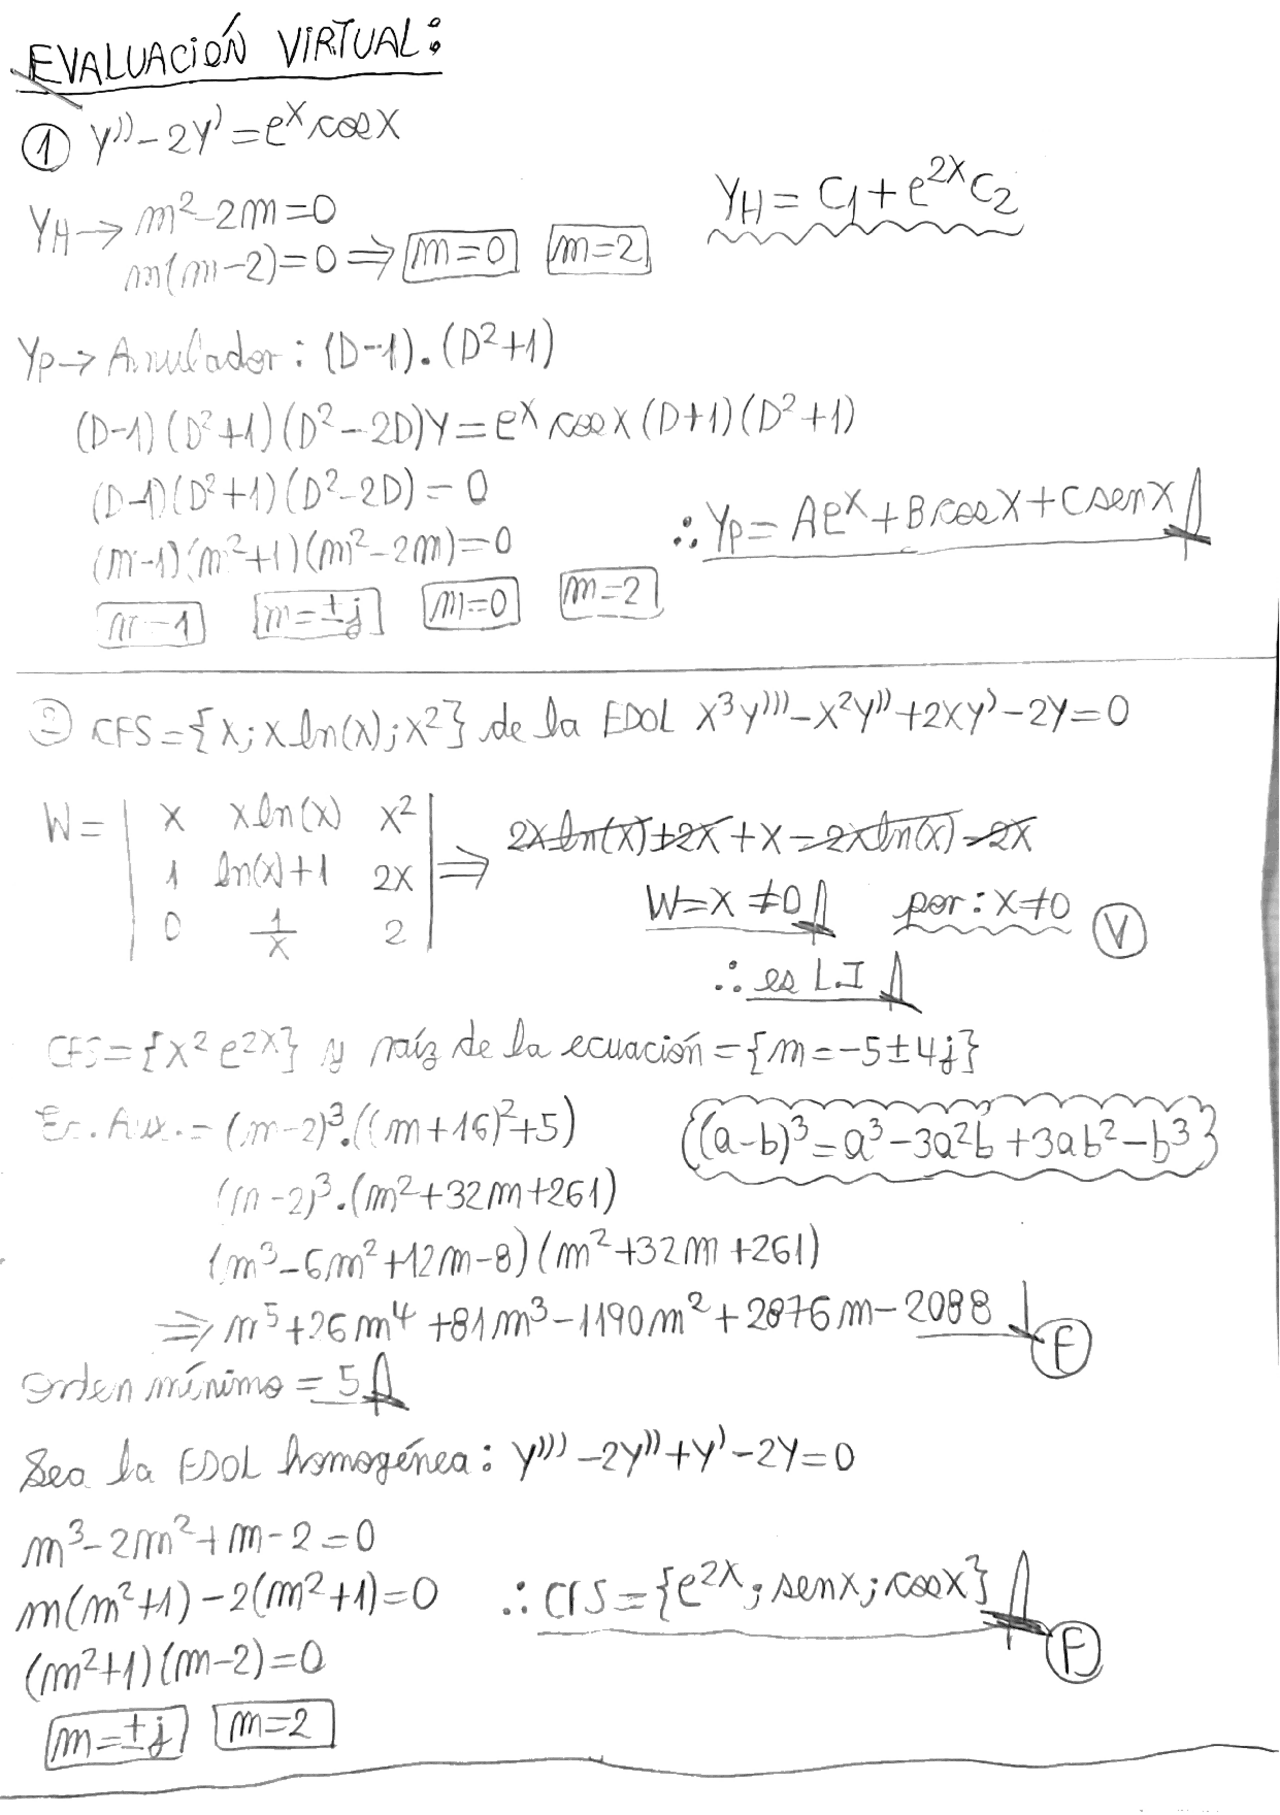 EVALUACIÓN VIRTUAL:
① y'' - 2y' = e^x cos x
Y_H → m² - 2m = 0
m(m-2) = 0 ⇒ m=0 m=2
Y_H = C1 + e^{2x} C2
Yp → Anulador: (D-1).(D²+1)
(D-1)(D²+1)(D²-2D)Y = e^x cos x (D+1)(D²+1)
(D-1)(D²+1)(D²-2D) = 0
(m-1)(m²+1)(m²-2m) = 0
m=1 m=±j m=0 m=2
∴ Yp = Ae^x + B cos x + C sen x
② CFS = {x; x ln(x); x²} de la EDOL x³y''' - x²y'' + 2xy' - 2y = 0
W = | x x ln(x) x² |
| 1 ln(x)+1 2x |
| 0 1/x 2 |
⇒ 2x ln(x) + 2x + x - 2x ln(x) - 2x
W = x ≠ 0 por: x ≠ 0 Ⓥ
∴ es L.I
CFS = {x² e^{2x}} y raíz de la ecuación = {m = -5 ± 4j}
Ec. Aux. = (m-2)³.((m+16)²+5)
{(a-b)³ = a³ - 3a²b + 3ab² - b³}
(m-2)³.(m²+32m+261)
(m³-6m²+12m-8)(m²+32m+261)
⇒ m⁵+26m⁴+81m³-1190m²+2876m-2088 Ⓕ
Orden mínimo = 5
Sea la EDOL homogénea: y''' - 2y'' + y' - 2y = 0
m³ - 2m² + m - 2 = 0
m(m²+1) - 2(m²+1) = 0
(m²+1)(m-2) = 0
m=±j m=2
∴ CFS = {e^{2x}; sen x; cos x} Ⓕ